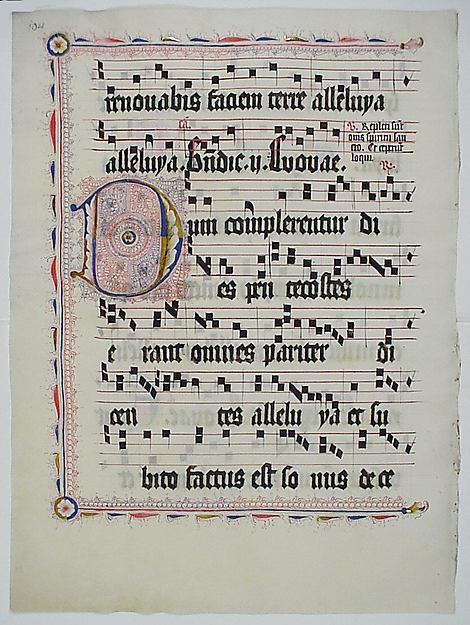 renovabis faciem terre alleluya
alleluya. Bndic. y. Evovae.
V. Repleti sūt
oms spiritu san
cto. Et ceperūt
loqui.
Dum complerentur di
es pen tecostes
e rant omnes pariter di
cen tes allelu ya et su
bito factus est so nus de ce